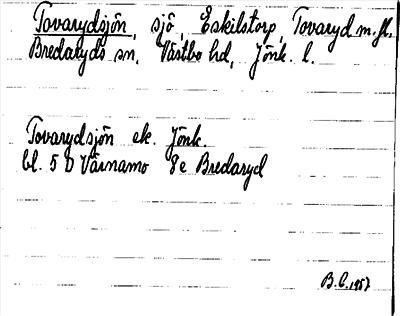 Tovarydsjön, sjö, Eskilstorp, Tovaryd m.fl.
Bredaryds sn, Västbo hd, Jönk. l.
Tovarydsjön ek. Jönk.
bl. 5 D Värnamo 8e Bredaryd
B.C. 1957